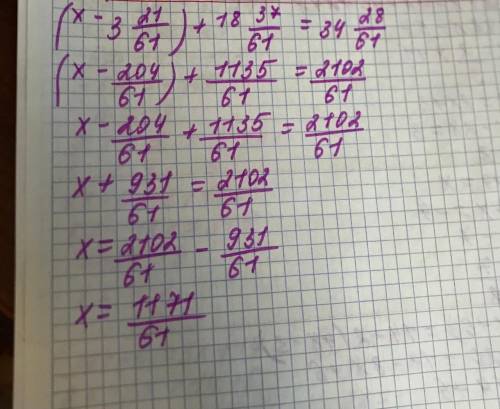 (x - 3 21/61) + 18 37/61 = 34 28/61
(x - 204/61) + 1135/61 = 2102/61
x - 204/61 + 1135/61 = 2102/61
x + 931/61 = 2102/61
x = 2102/61 - 931/61
x = 1171/61